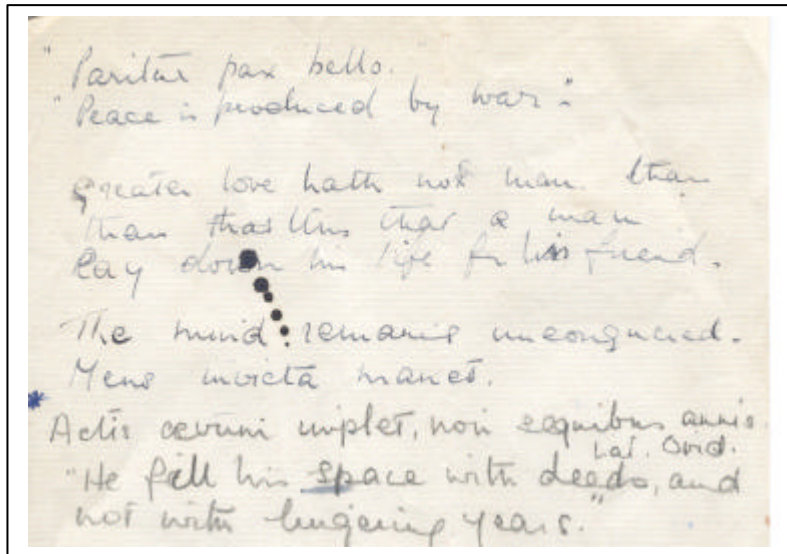 "Paritur pax bello.
"Peace is produced by war".
Greater love hath not man. than
than that this that a man
lay down his life for his friend.
The mind remains unconquered.
Mens invicta manet.
*
Actis aevum implet, non segnibus annis.
Lat. Ovid.
"He fill his space with deeds, and
not with lingering years."